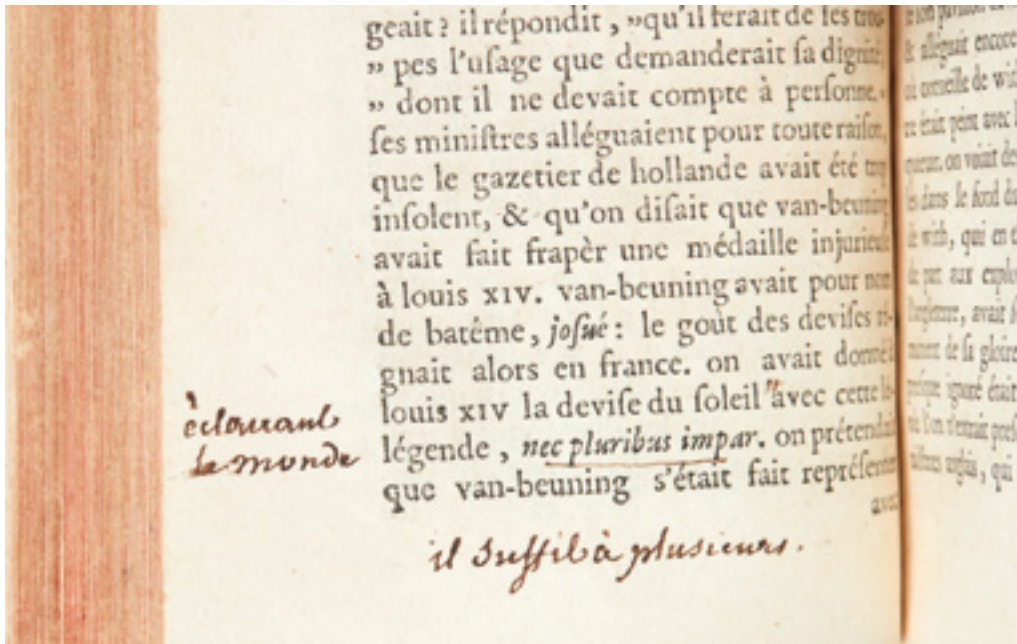 geait? il répondit, „qu'il ferait de ses trou-
„ pes l'usage que demanderait sa dignité,
„ dont il ne devait compte à personne.„
ses ministres alléguaient pour toute raison,
que le gazetier de hollande avait été trop
insolent, & qu'on disait que van-beuning
avait fait frapèr une médaille injurieuse
à louis XIV. van-beuning avait pour nom
de batême, josué: le goût des devises ré-
gnait alors en france. on avait donné à
louis XIV la devise du soleil avec cette
légende, nec pluribus impar. on prétendait
que van-beuning s'était fait représenter
avec
éclairant
le monde
il suffit à plusieurs.
& alléguait encore
corneille de with
était peint avec
on voiait
dans le fond
de with, qui en
de part aux
l'angleterre, avait
de sa gloire
ignoré était
anglais, qui